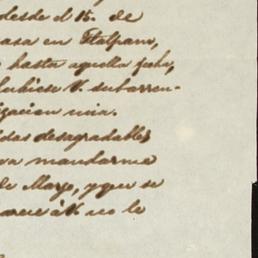 desde el 15. de
casa en Tlalpam,
hasta aquella fecha,
hubiese V. subarren-
izacion mia.
das desagradables
va mandarme
de Marzo, y que se
parece á V. no le